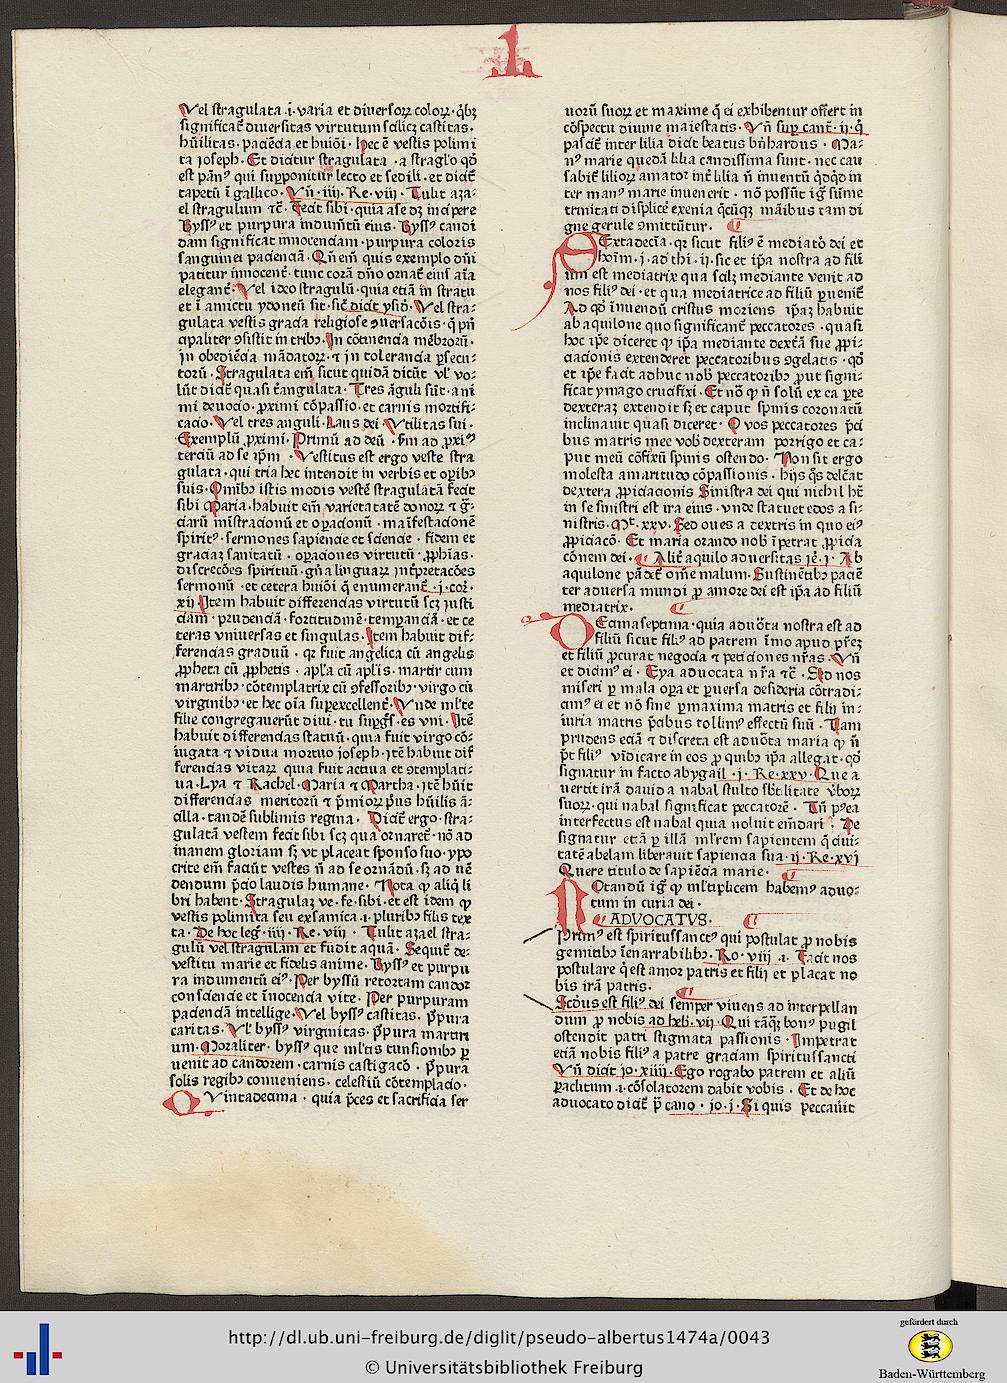 1
Vel stragulata .i. varia et diuersoꝝ coloꝝ. q̇bꝫ
significat̄ diuersitas virtutum scilicꝫ castitas.
hūilitas. paciēcia et huiōi. hec ē vestis polimi
ta ioseph. Et dicitur stragulata. a straglō qd̄
est pān⁹ qui supponitur lecto et sedili. et dicit̄
tapetū ī gallico. Vn̄ .iiij. Re. viij. Tulit aza-
el stragulum ⁊c̄. Fecit sibi. quia a se dꝫ incipere
Byss⁹ et purpura indumt̄ū eius. Byss⁹ candi
dam significat innocenciam. purpura coloris
sanguinei pacienciā. Qn̄ em̄ quis exemplo dn̄i
patitur innocent̄. tunc corā dn̄o ornat̄ eius aīa
elegant̄. Vel ideo stragulū. quia etiā in stratu
et ī amictu ydoneū sit. sic̄ dicit ysid̄. Vel stra-
gulata vestis gracia religiose ꝯuersacōis. q̄ prī
cipaliter ꝯsistit in tribꝫ. In cōtinencia mēbroꝝ.
in obediēcia mādatoꝝ. ⁊ in tolerancia ꝑsecu-
torū. Stragulata em̄ sicut quidā dicūt vl̓ vo-
lūt dicit̄ quasi t̄angulata. Tres āguli sūt. ani
mi deuocio. ꝓximi cōpassio. et carnis mortifi-
cacio. Vel tres anguli. Laus dei. Vtilitas sui.
Exemplū ꝓximi. Primū ad deū. sm̄ ad ꝓxi⁹
terciū ad se ip̄m. Vestitus est ergo veste stra
gulata. qui tria hec intendit in verbis et oꝑibꝫ
suis. Omībꝫ istis modis vestē stragulatā fecit
sibi Maria. habuit em̄ varietatē donoꝝ et g̃-
ciarū mīstracionū et oꝑacionū. maīfestacionē
spirit⁹. sermones sapiencie et sciencie. fidem et
graciaꝫ sanitatū. oꝑaciones virtutū. ꝓphias.
discrecōes spirituū. gn̄a linguaꝝ int̓pretacōes
sermonū. et cetera huiōi q̄ enumerant̄ .i. cor̄.
xij. Item habuit differencias virtutū scꝫ iusti
ciam. prudenciā. fortitudinē. tempancia. et ce
teras vniuersas et singulas. Item habuit dif-
ferencias graduū. qꝛ fuit angelica cū angelis
ꝓpheta cū ꝓphetis. apl̓a cū apl̓is. martir cum
martiribꝫ. cōtemplatrix cū ꝯfessoribꝫ. virgo cū
virginibꝫ. et hec oīa supexcellent̄. Vnde ml̓te
filie congregauerūt diui. tu sup̄gr̄s. es vni. Itē
habuit differencias statuū. quia fuit virgo cō-
iugata ⁊ vidua mortuo ioseph. itē habuit dif
ferencias vitaꝝ quia fuit actiua et ꝯtemplati-
ua. Lya ⁊ Rachel. Maria ⁊ Martha. itē hūit
differencias meritorū ⁊ p̄mioꝝ pr̄us hūilis ā-
cilla. tandē sublimis regina. Dicit̄ ergo. stra-
gulatā vestem fecit sibi scꝫ qua ornaret̄. nō ad
inanem gloriam sꝫ vt placeat sponso suo. ypo
crite em̄ faciūt vestes n̄ ad se ornādū. sꝫ ad uē
dendum p̄cio laudis humane. Nota ꝙ aliq̇ li
bri habent. Stragulaꝫ ve. fe. sibi. et est idem ꝙ
vestis polimita seu exsamica .i. pluribꝫ filis tex
ta. De hoc leg̃. iiij. Re. viij. Tulit azael stra-
gulū vel stragulam et fudit aquā. Sequit̄ de-
vestitu marie et fidelis anime. Byss⁹ et purpu
ra indumentū ei⁹. Per byssū retortam candor
consciencie et īnocencia vite. Per purpuram
pacienciā intellige. Vel byss⁹ castitas. p̄pura
caritas. Vl̓ byss⁹ virginitas. p̄pura martiri
um. Moraliter. byss⁹ que ml̓tis tunsionibꝫ ꝑ
uenit ad candorem. carnis castigacō. p̄pura
solis regibꝫ conueniens. celestiū cōtemplacio.
Quintadecima. quia p̄ces et sacrificia ser
uorū suoꝝ et maxime q̄ ei exhibentur offert in
cōspectu diuine maiestatis. Vn̄ sup cant̄. ij. q̇
pascit̄ inter lilia dicit beatus bn̄hardus. Ma-
n⁹ marie quedā lilia candissima sunt. nec cau
sabit̄ lilioꝝ amator int̄ lilia n̄ inuentū q̇dq̇d in
ter man⁹ marie inuenerit. nō possūt ig̃ sūme
trinitati displicē exenia q̄cūqꝫ māibus tam di
gne gerule ꝯmittūtur.
Sextadecīa. qꝛ sicut fili⁹ ē mediato̓ dei et
hoīm. i. ad thi. ij. sic et ip̄a nostra ad fili
um est mediatrix qua scilꝫ mediante venit ad
nos fili⁹ dei. et qua mediatrice ad filiū ꝑuenit̄
Ad qd̄ īnuendū cristus moriens ip̄aꝫ habuit
ab aquilone quo significant̄ peccatores. quasi
hoc ip̄e diceret ꝙ ip̄a mediante dext̄ā sue ꝓpi-
ciacionis extenderet peccatoribus ꝯgelatis. qd̄
et ip̄e facit adhuc nob̄ peccatoribꝫ ꝓut signi-
ficat ymago crucifixi. Et nō ꝙ n̄ solū ex ea ꝑte
dexteraꝫ extendit sꝫ et caput spinis coronatū
inclinauit quasi diceret. O vos peccatores p̄ci
bus matris mee vob̄ dexteram porrigo et ca-
put meū cōfixū spinis ostendo. Non sit ergo
molesta amaritudo cōpassionis. hijs q̇s delc̄at
dextera ꝓpiciacionis Sinistra dei qui nichil ht̄
in se sinistri est ira eius. vnde statuet edos a si-
nistris. Mt̄. xxv. Sed oues a dextris in quo ei⁹
ꝓpiciacō. Et maria orando nob̄ īpetrat ꝓpicia
cōnem dei. Alit̄ aquilo aduersitas ie̓. i. Ab
aquilone pādet̄ om̄e malum. Sustinētibꝫ pacien̄
ter aduersa mundi ꝓ amore dei est ip̄a ad filiū
mediatrix.
Decimaseptima. quia aduōta nostra est ad
filiū sicut fili⁹ ad patrem īmo apud pr̄eꝫ
et filiū ꝓcurat negocia ⁊ peticiones nr̄as. Vn̄
et dicim⁹ ei. Eya aduocata nr̄a ⁊c̄. Sed nos
miseri ꝑ mala oꝑa et ꝑuersa desideria cōtradi-
cim⁹ ei et nō sine ꝑmaxima matris et filij in-
iuria matris p̄cibus tollim⁹ effectū suū. Tam
prudens eciā ⁊ discreta est aduōta maria ꝙ n̄
pt̄ fili⁹ vīdicare in eos ꝓ quibꝫ ip̄a allegat. qd̄
signatur in facto abygail. i. Re. xxv. Que a
uertit irā dauid a nabal stulto sbt̄ilitate v̓boꝝ
suoꝝ. qui nabal significat peccatorē. Tn̄ p⁹ea
interfectus est nabal quia noluit em̄dari. De
signatur etiā ꝑ illā ml̓rem sapientem q̄ ciui-
tatē abelam liberauit sapiencia sua. ij. Re. xvj
Quere titulo de sapiēcia marie.
Notandū ig̃ ꝙ ml̓tiplicem habem⁹ aduo-
catum in curia dei.
ADVOCATVS.
Prim⁹ est spiritussanct⁹ qui postulat ꝓ nobis
gemitibꝫ īenarrabilibꝫ. Ro. viij. .i. Facit nos
postulare q̇ est amor patris et filij et placat no
bis irā patris.
Scd̄us est fili⁹ dei semper viuens ad interpellan
dum ꝓ nobis ad heb̄. vij. Qui tāqꝫ bon⁹ pugil
ostendit patri stigmata passionis. Impetrat
etiā nobis fili⁹ a patre graciam spiritussancti
Vn̄ dicit io. xiiij. Ego rogabo patrem et aliū
ꝑaclitum .i. cōsolatorem dabit vobis. Et de hoc
aduocato dicit̄ p̄ cano. io. i. Si quis peccauīt
http://dl.ub.uni-freiburg.de/diglit/pseudo-albertus1474a/0043
© Universitätsbibliothek Freiburg
gefördert durch
Baden-Württemberg